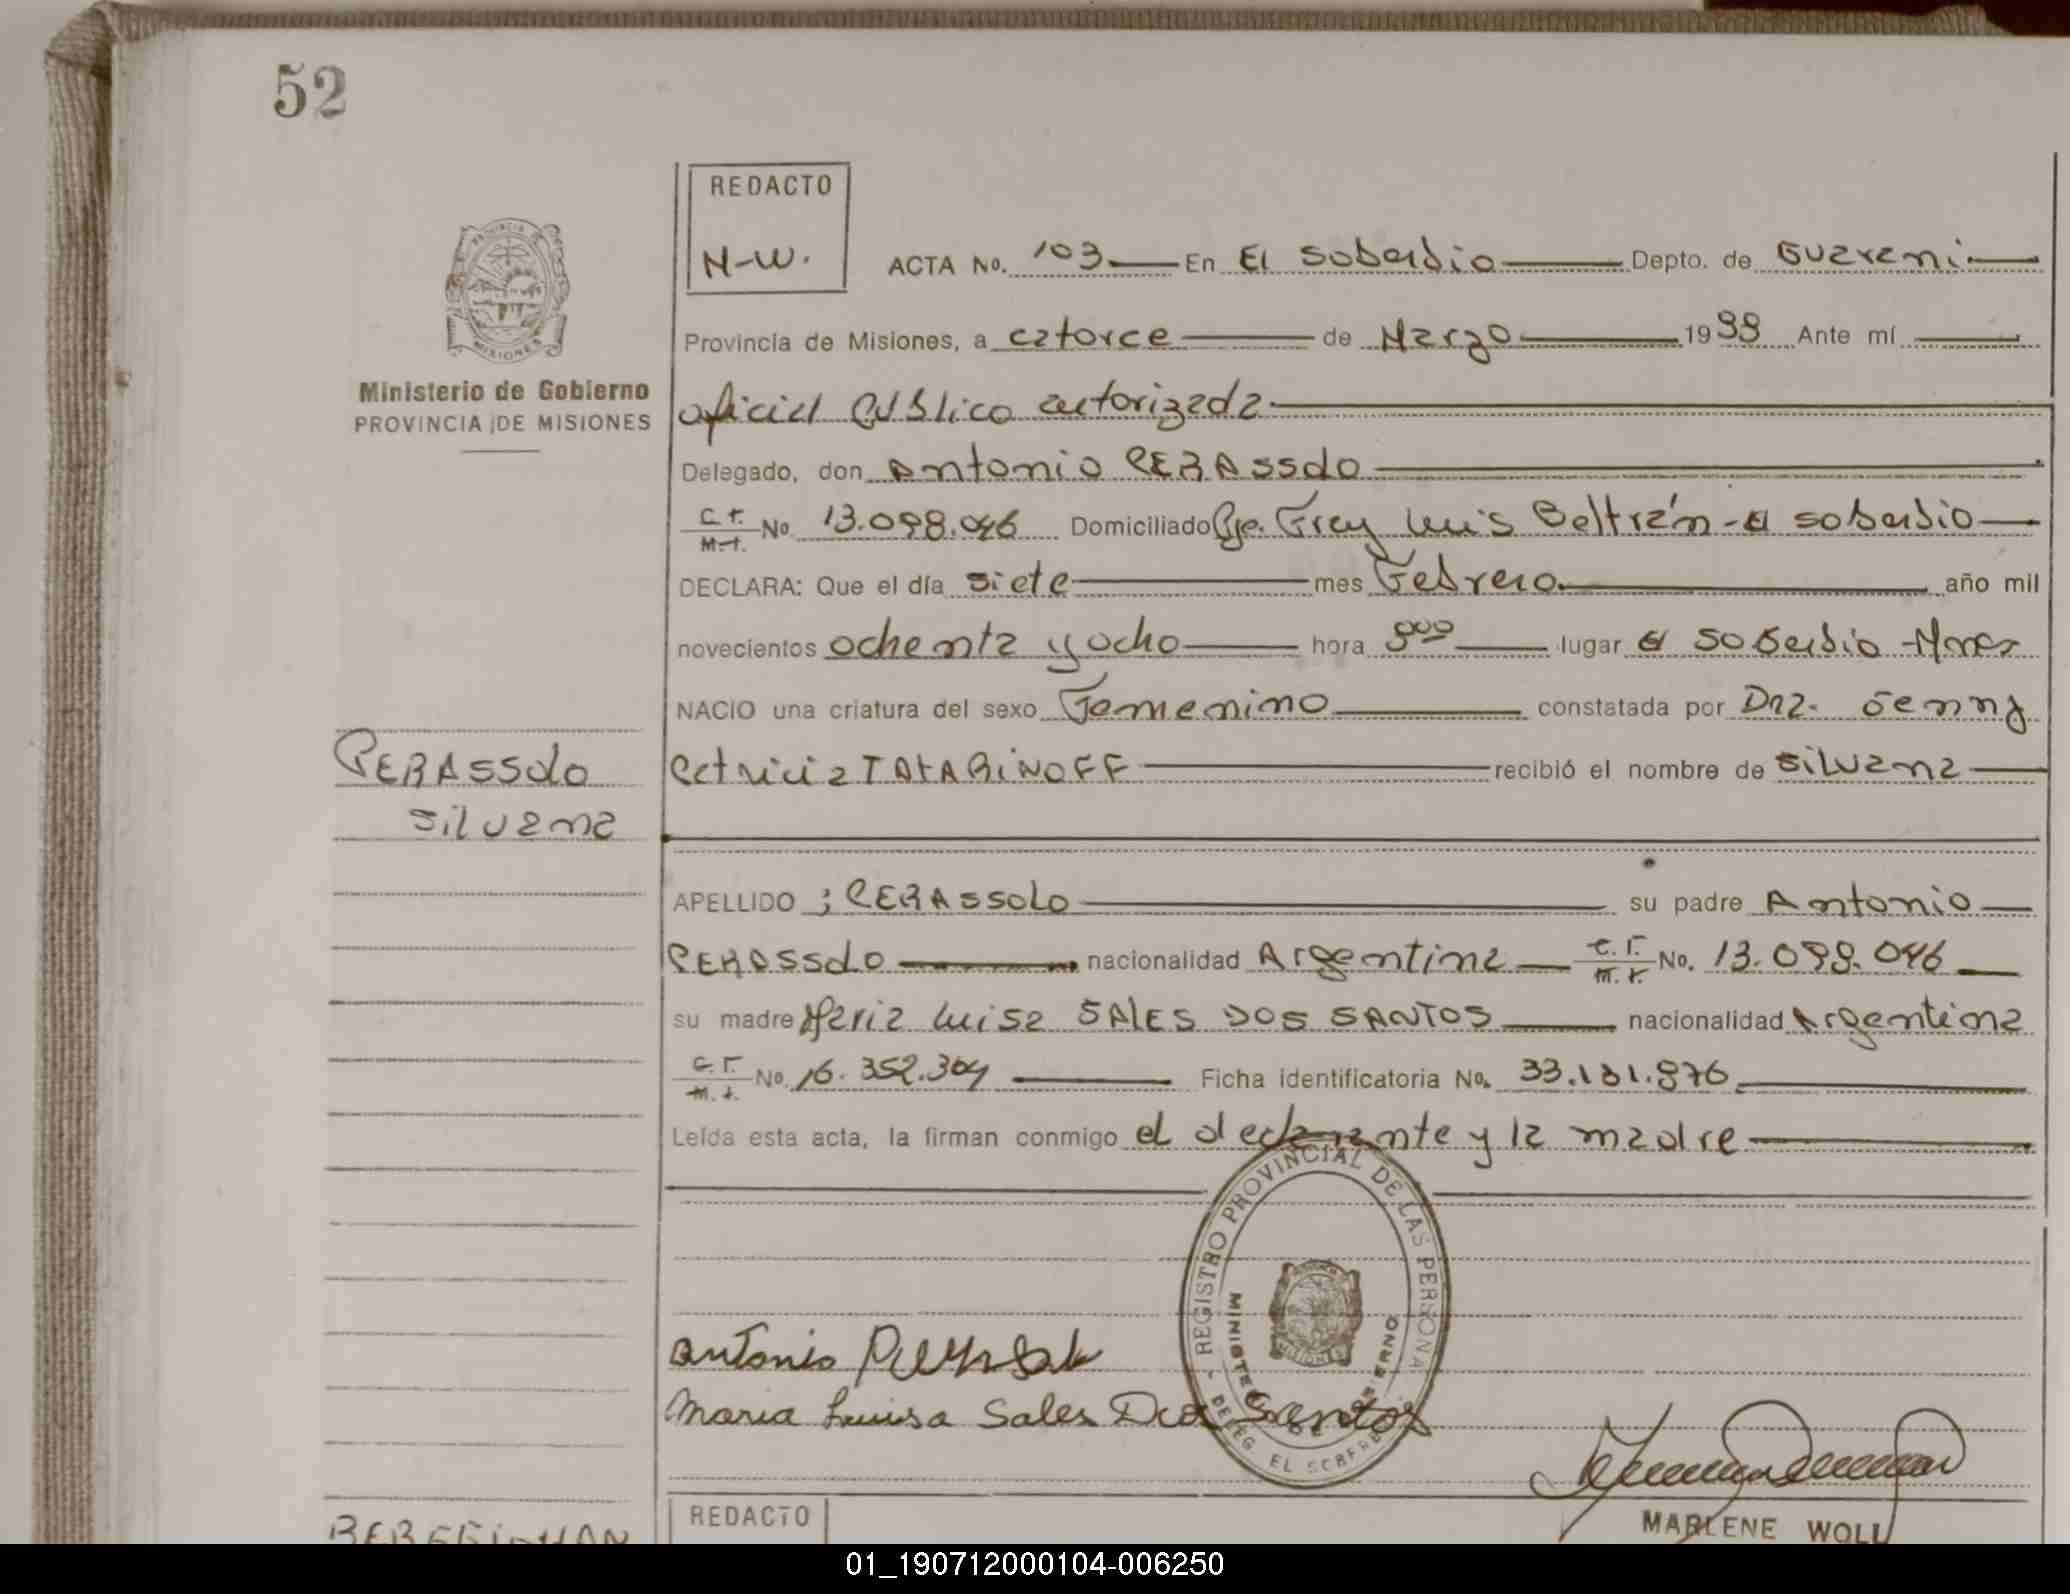 52
REDACTO
M-W.
ACTA No. 103 En El Soberbio Depto. de Guarani
Provincia de Misiones, a catorce de Marzo 1988 Ante mí
PROVINCIA DE
MISIONES
Ministerio de Gobierno
PROVINCIA DE MISIONES
oficial Público autorizada
Delegado, don Antonio PERASSOLO
C.I. M.I. No. 13.098.046 Domiciliado Pje. Fray Luis Beltrán - El Soberbio
DECLARA: Que el día siete mes Febrero año mil
novecientos ochenta y ocho hora 8,00 lugar El Soberbio - Mnes
NACIO una criatura del sexo Femenino constatada por Dra. Jenny
PERASSOLO
Silvana
Patricia TATARINOFF recibió el nombre de Silvana
APELLIDO ; PERASSOLO su padre Antonio
PERASSOLO nacionalidad Argentina C.I. M.I. No. 13.098.046
su madre Maria Luisa SALES DOS SANTOS nacionalidad Argentina
C.I. M.I. No. 16.352.304 Ficha identificatoria No. 33.131.876
Leída esta acta, la firman conmigo el declarante y la madre
REGISTRO PROVINCIAL DE LAS PERSONA
MINISTE DE OBIERNO
MISIONES
DELEG. EL SOBERB
Antonio
Maria Luisa Sales Dos Santos
MARLENE WOLL
REDACTO
01_190712000104-006250